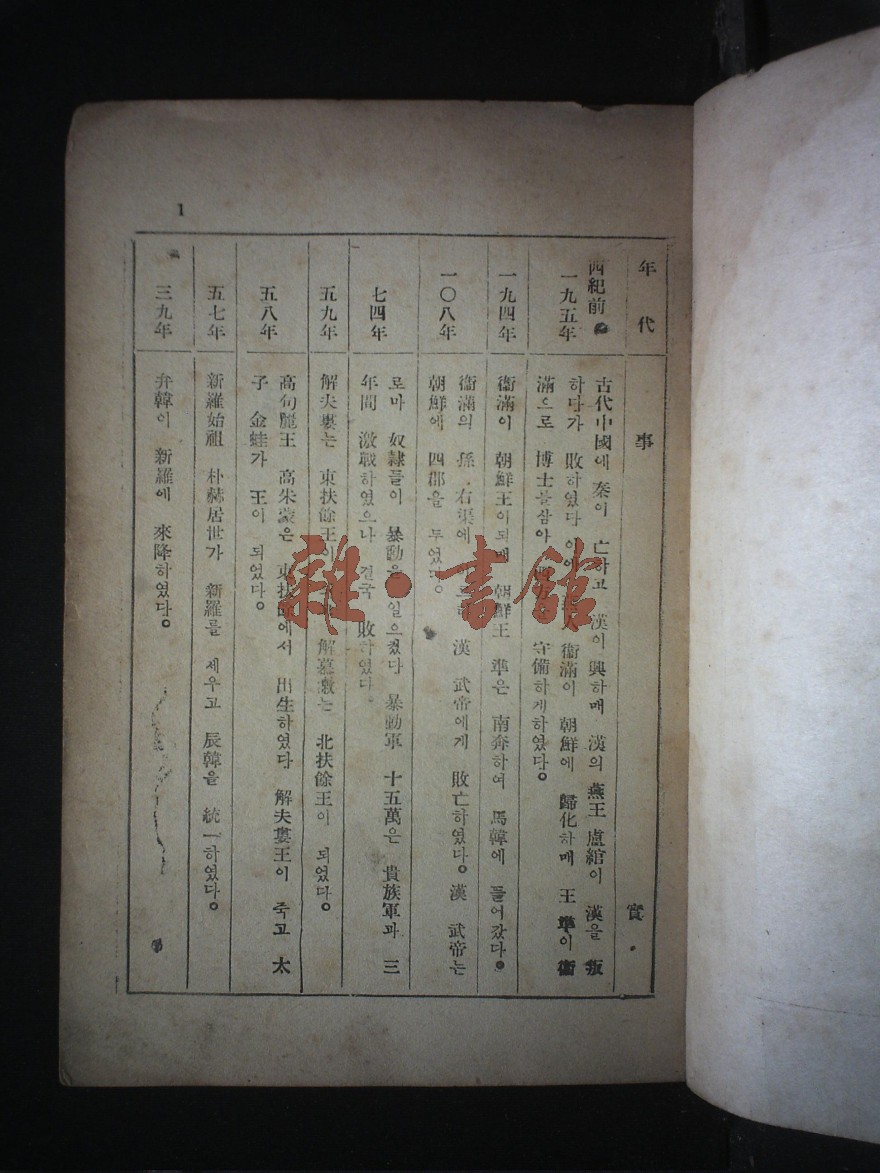 1
年代
事實
西紀前
一九五年
古代中國에 秦이 亡하고 漢이 興하매 漢의 燕王 盧綰이 漢을 叛
하다가 敗하였다 이에 衞滿이 朝鮮에 歸化하매 王 準이 衞
滿으로 博士를삼아 守備하게하였다。
一九四年
衞滿이 朝鮮王이되매 朝鮮王 準은 南奔하여 馬韓에 들어갔다。
一〇八年
衞滿의 孫 右渠에 漢 武帝에게 敗亡하였다。漢 武帝는
朝鮮에 四郡을 두었다。
七四年
로마 奴隷들이 暴動을 일으켰다 暴動軍 十五萬은 貴族軍과 三
年間 激戰하였으나 결국 敗하였다。
五九年
解夫婁는 東扶餘王이 解慕漱는 北扶餘王이 되었다。
五八年
高句麗王 高朱蒙은 東扶餘에서 出生하였다 解夫婁王이 죽고 太
子 金蛙가 王이 되었다。
五七年
新羅始祖 朴赫居世가 新羅를 세우고 辰韓을 統一하였다。
三九年
弁韓이 新羅에 來降하였다。
雜·書館